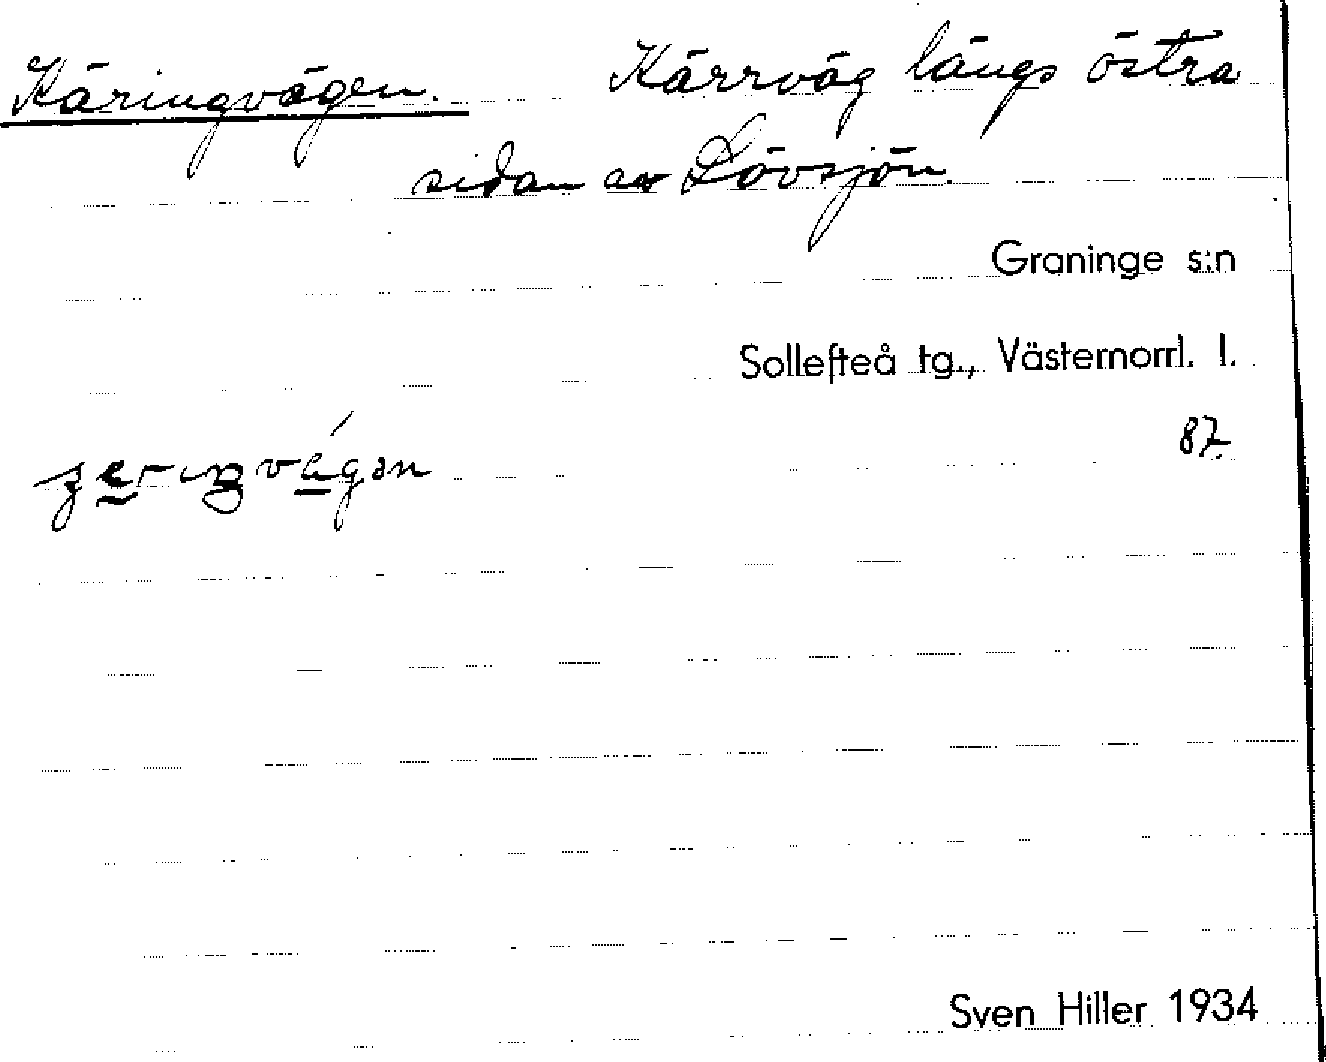 Käringvägen. Kärrväg längs östra
sidan av Lövsjön.
Graninge s:n
Sollefteå tg., Västernorrl. l.
87.
Sven Hiller 1934